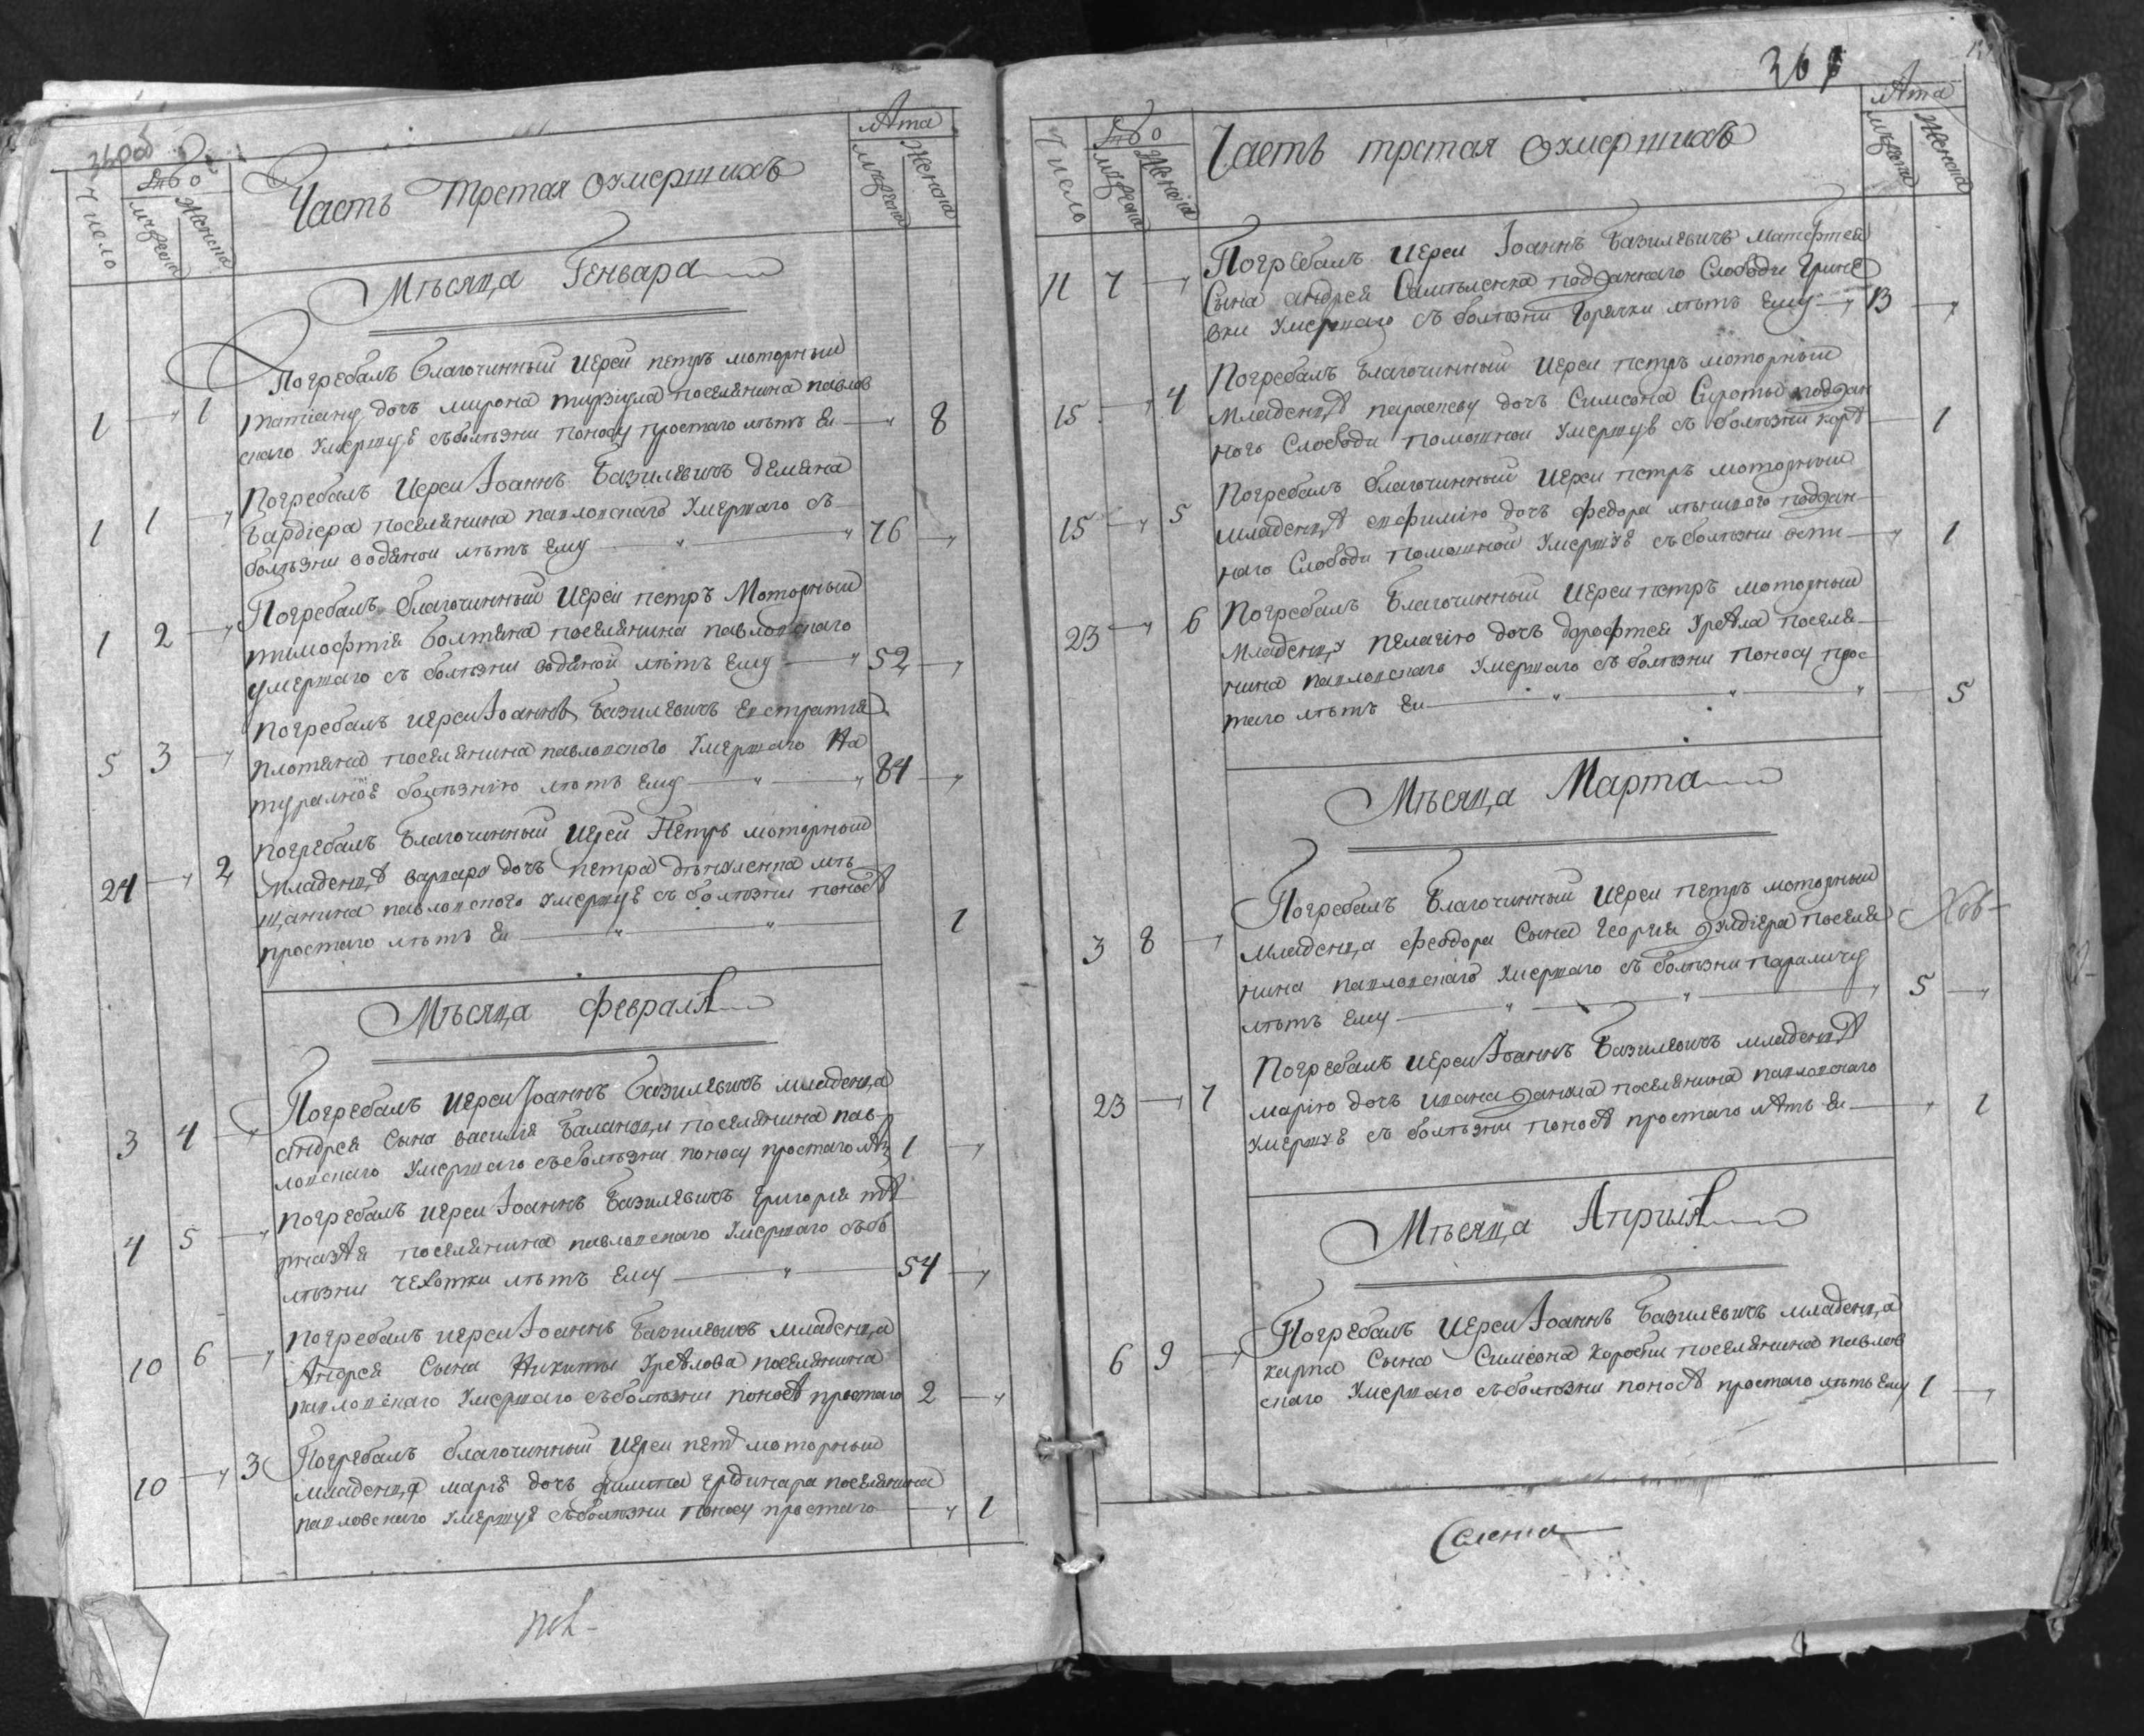 Число
мужеска
женска
Часть Третая Оумершихъ
Лѣта
мужеска
женска
Мѣсяца Генвара
Погребалъ благочинный иерей петръ моторный
1 1 татіану дочь мирона поселянина павлов
скаго Умершую съ болѣзни поносу простаго лѣтъ Еи 8
Погребалъ Иерей Іоаннъ Базилевичъ демяна
1 1 Бардіера поселянина павловскаго Умершаго съ
болѣзни водяной лѣтъ Ему 76
Погребалъ благочинный Иерей петръ Моторный
1 2 тимофтія болтяна поселянина павловскаго
умершаго съ болѣзни водяной лѣтъ Ему 52
Погребалъ иерей Іоаннъ Базилевичъ Евстратія
5 3 плотяна поселянина павловского Умершаго На
туралною болѣзнію лѣтъ Ему 84
Погребалъ Благочинный Иерей Петръ моторный
24 2 Младенца варвару дочь петра мѣ
щанина павловского умершую съ болѣзни поноса
простаго лѣтъ Еи 1
Мѣсяца февраля
Погребалъ иерей Іоаннъ Базилевичъ младенца
3 4 Андрея Сына василія Баланецъ поселянина пав
ловскаго Умершаго съ болѣзни поносу простаго 1
Погребалъ иерей Іоаннъ Базилевичъ Григорія
4 5 поселянина павловскаго Умершаго съ бо
лѣзни чехотки лѣтъ Ему 54
Погребалъ иерей Іоаннъ Базилевичъ младенца
10 6 Андрея Сына Никиты Урсѣлова поселянина
павловскаго Умершаго съ болѣзни поноса простаго 2
Погребалъ благочинный Иерей петръ моторный
10 3 младенца марію дочь филипа поселянина
павловскаго Умершую съ болѣзни поносу простаго 1
Число
мужеска
женска
Часть третая Оумершихъ
Лѣта
мужеска
женска
Погребалъ Иерей Іоаннъ Базилевичъ Матфтея
11 7 Сына андрея подданнаго Слободи Грине
вки Умершаго съ болѣзни Горячки лѣтъ Ему 13
Погребалъ Благочинный Иерей петръ моторный
15 4 Младенца параскеву дочь Симеона Сироты поддан
ного Слободи помошной Умершую съ болѣзни корѣ 1
Погребалъ благочинный Иерей петръ моторный
15 5 младенца евфимію дочь федора поддан
наго Слободи помошной Умершую съ болѣзни оспи 1
Погребалъ Благочинный Иерей петръ моторный
23 6 Младенцу пелагію дочь дорофтея Урсѣла поселя
нина павловскаго Умершаго съ болѣзни поносу прос
таго лѣтъ Еи 5
Мѣсяца Марта
Погребалъ Благочинный Иерей петръ моторный
3 8 младенца феодора Сына Георгія поселя
нина павловскаго Умершаго съ болѣзни параличу
лѣтъ Ему 5
Погребалъ иерей Іоаннъ Базилевичъ младенца
23 7 марію дочь ивана поселянина павловскаго
Умершую съ болѣзни поноса простаго лѣтъ Еи 1
Мѣсяца Априля
Погребалъ Иерей Іоаннъ Базилевичъ младенца
6 9 карпа Сына Симеона Коробки поселянина павлов
скаго Умершаго съ болѣзни поноса простаго лѣтъ Ему 1